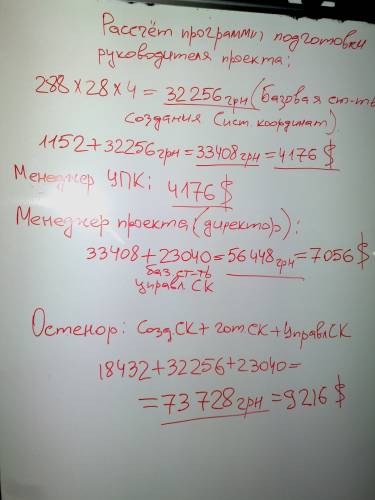 Рассчёт программы подготовки
руководителя проекта:
288×28×4 = 32256грн (базовая ст-ть
создания Сист. координат)
1152+32256грн=33408грн=4176$
Менеджер УПК: 4176$
Менеджер проекта (директор):
33408+23040=56448грн=7056$
баз. ст-ть
управл СК
Остенор: Созд СК + гот. СК + Управл СК
18432+32256+23040=
=73728грн=9216$